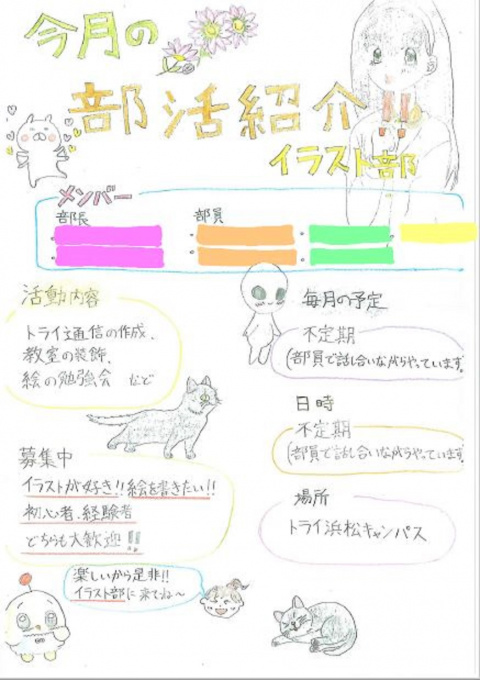 今月の
部活紹介
イラスト部
メンバー
部長
部員
活動内容
トライ通信の作成、
教室の装飾、
絵の勉強会 など
毎月の予定
不定期
(部員で話し合いながらやっています)
日時
不定期
(部員で話し合いながらやっています)
募集中
イラストが好き!!絵を書きたい!!
初心者、経験者
どちらも大歓迎!!
場所
トライ浜松キャンパス
楽しいから是非!!
イラスト部に来てね〜